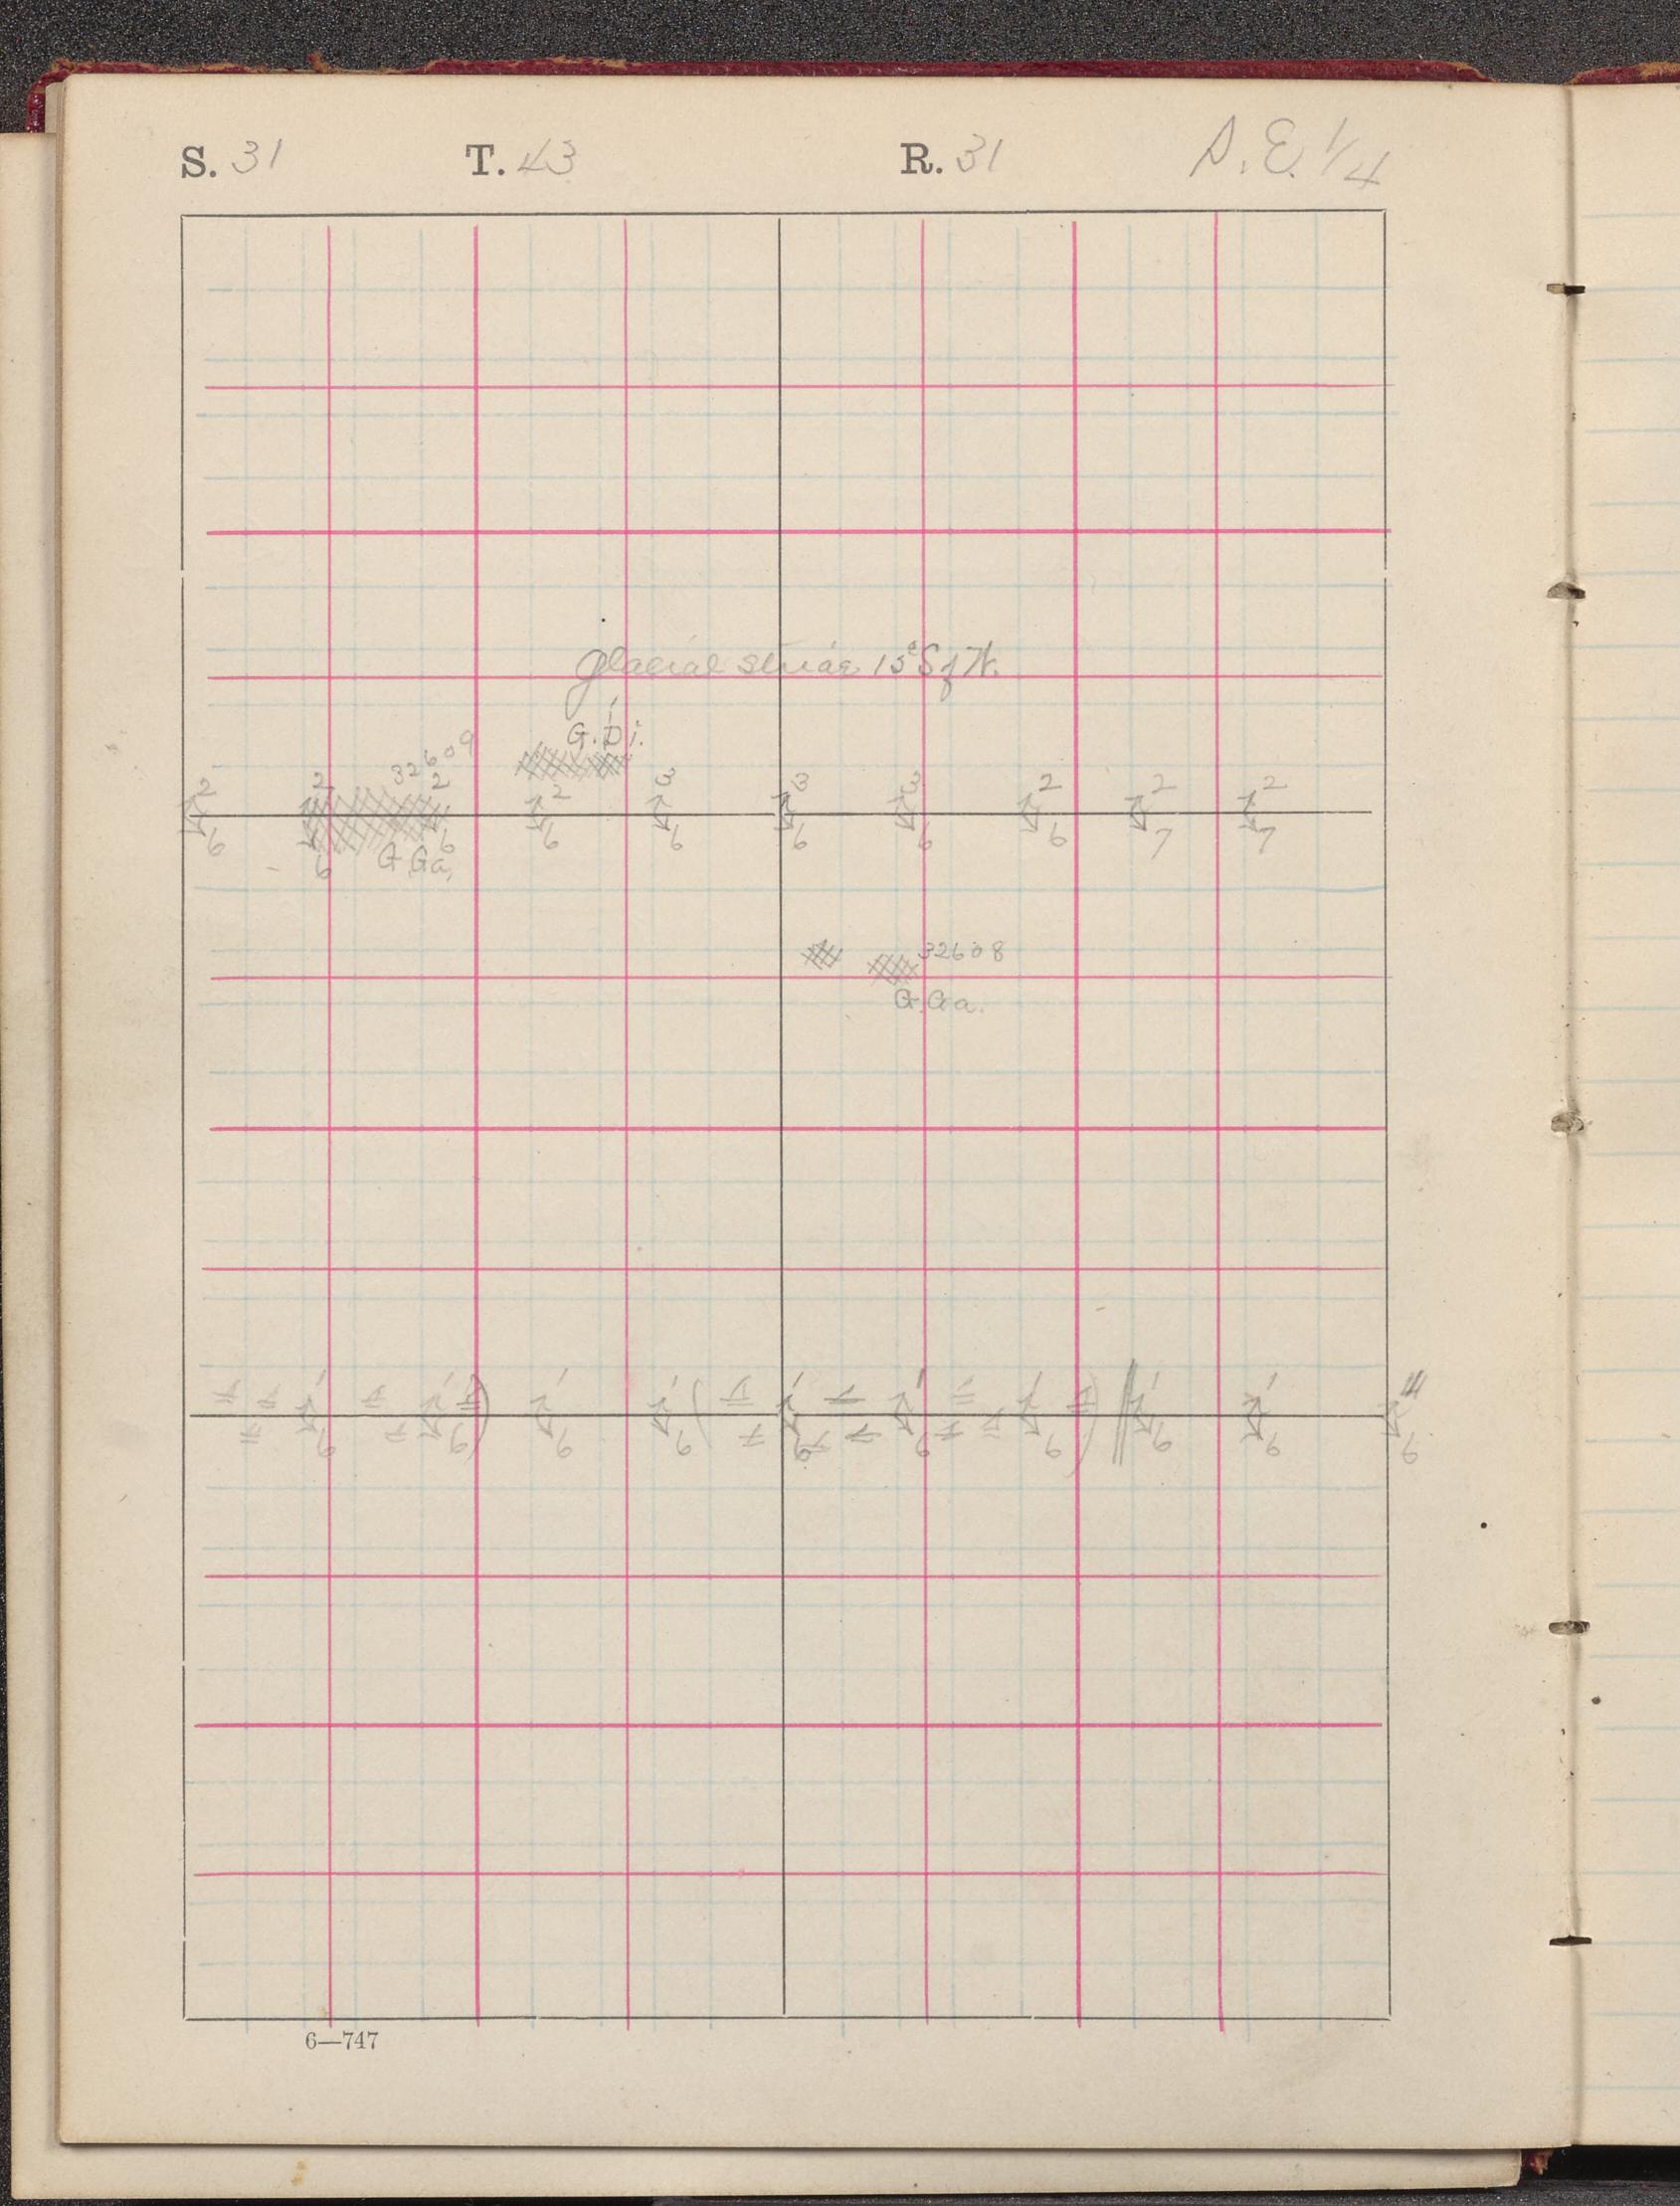 S. 31 T. 43 R. 31 S.E. 1/4
glacial striae 15° S of W.
G. Di.
32609
2 2 2 2 3 3 3 2 2 2
6 6 6 6 6 6 6 6 7 7
G. Ga.
32608
G. Ga.
1 1 1 1 1 1 1 1 1
9 9 9 9 9 9 9 9 9 9
6—747